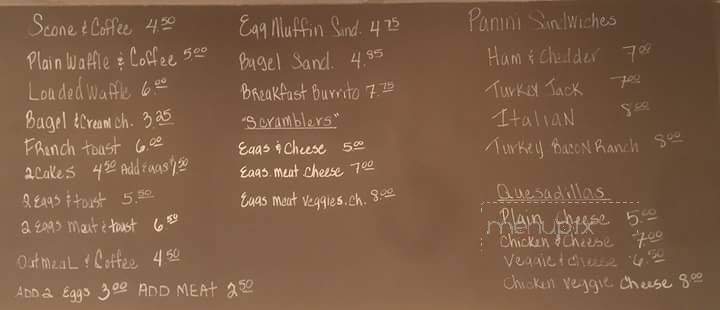 Scone & Coffee 4.50
Plain Waffle & Coffee 5.00
Loaded Waffle 6.00
Bagel & Cream ch. 3.25
French toast 6.00
2 Cakes 4.50 Add eggs 1.50
2 eggs & toast 5.50
2 eggs meat & toast 6.50
Oatmeal & Coffee 4.50
ADD 2 Eggs 3.00 ADD MEAT 2.50
Egg Muffin Sand. 4.75
Bagel Sand. 4.85
Breakfast Burrito 7.75
"Scramblers"
Eggs & Cheese 5.00
Eggs. meat Cheese 7.00
Eggs meat veggies. ch. 8.00
Panini Sandwiches
Ham & Chedder 7.00
Turkey Jack 7.00
Italian 8.00
Turkey Bacon Ranch 8.00
Quesadillas
Plain Cheese 5.00
Chicken & Cheese 7.00
Veggie & Cheese 6.50
Chicken Veggie Cheese 8.00
menupix